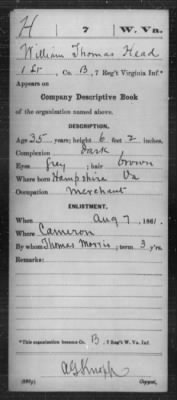 H 7 W. Va.
William Thomas Head
1 Lt, Co. B, 7 Reg't Virginia Inf.*
Appears on
Company Descriptive Book
of the organization named above.
DESCRIPTION.
Age 35 years; height 6 feet 2 inches.
Complexion Dark
Eyes Grey; hair brown
Where born Hampshire Va
Occupation Merchant
ENLISTMENT.
When Aug 7, 1861.
Where Cameron
By whom Thomas Morris; term 3 y'rs.
Remarks:
*This organization became Co. B, 7 Reg't W. Va. Inf.
AG Knepp
Copyist.